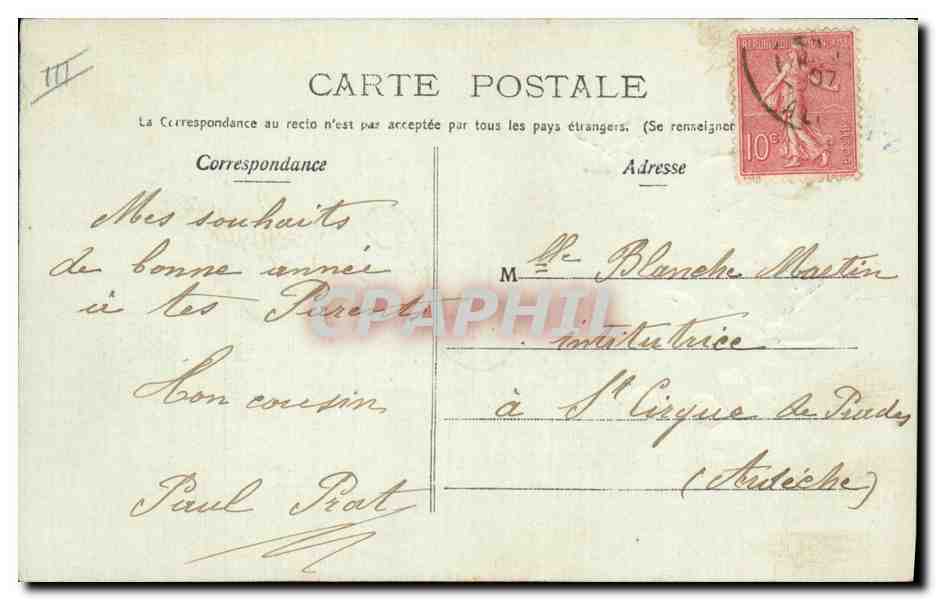 III
CARTE POSTALE
La Correspondance au recto n'est pas acceptée par tous les pays étrangers. (Se renseigner
Correspondance
Adresse
RÉPUBLIQUE FRANÇAISE
10c
POSTES
07
Mes souhaits
de bonne année
à tes Parents
Ton cousin
Paul Prat
Mlle Blanche Martin
institutrice
à St Cirgue de Prades
(Ardèche)
CPAPHIL